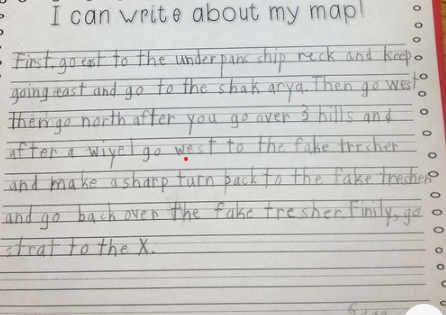 I can write about my map!
First, go east to the underpans ship reck and keep
going east and go to the shak arya. Then go west
then go north after you go over 3 hills and
after a wiyel go west to the fake tresher
and make a sharp turn back to the fake tresher
and go back over the fake tresher. Finily, go
strat to the X.